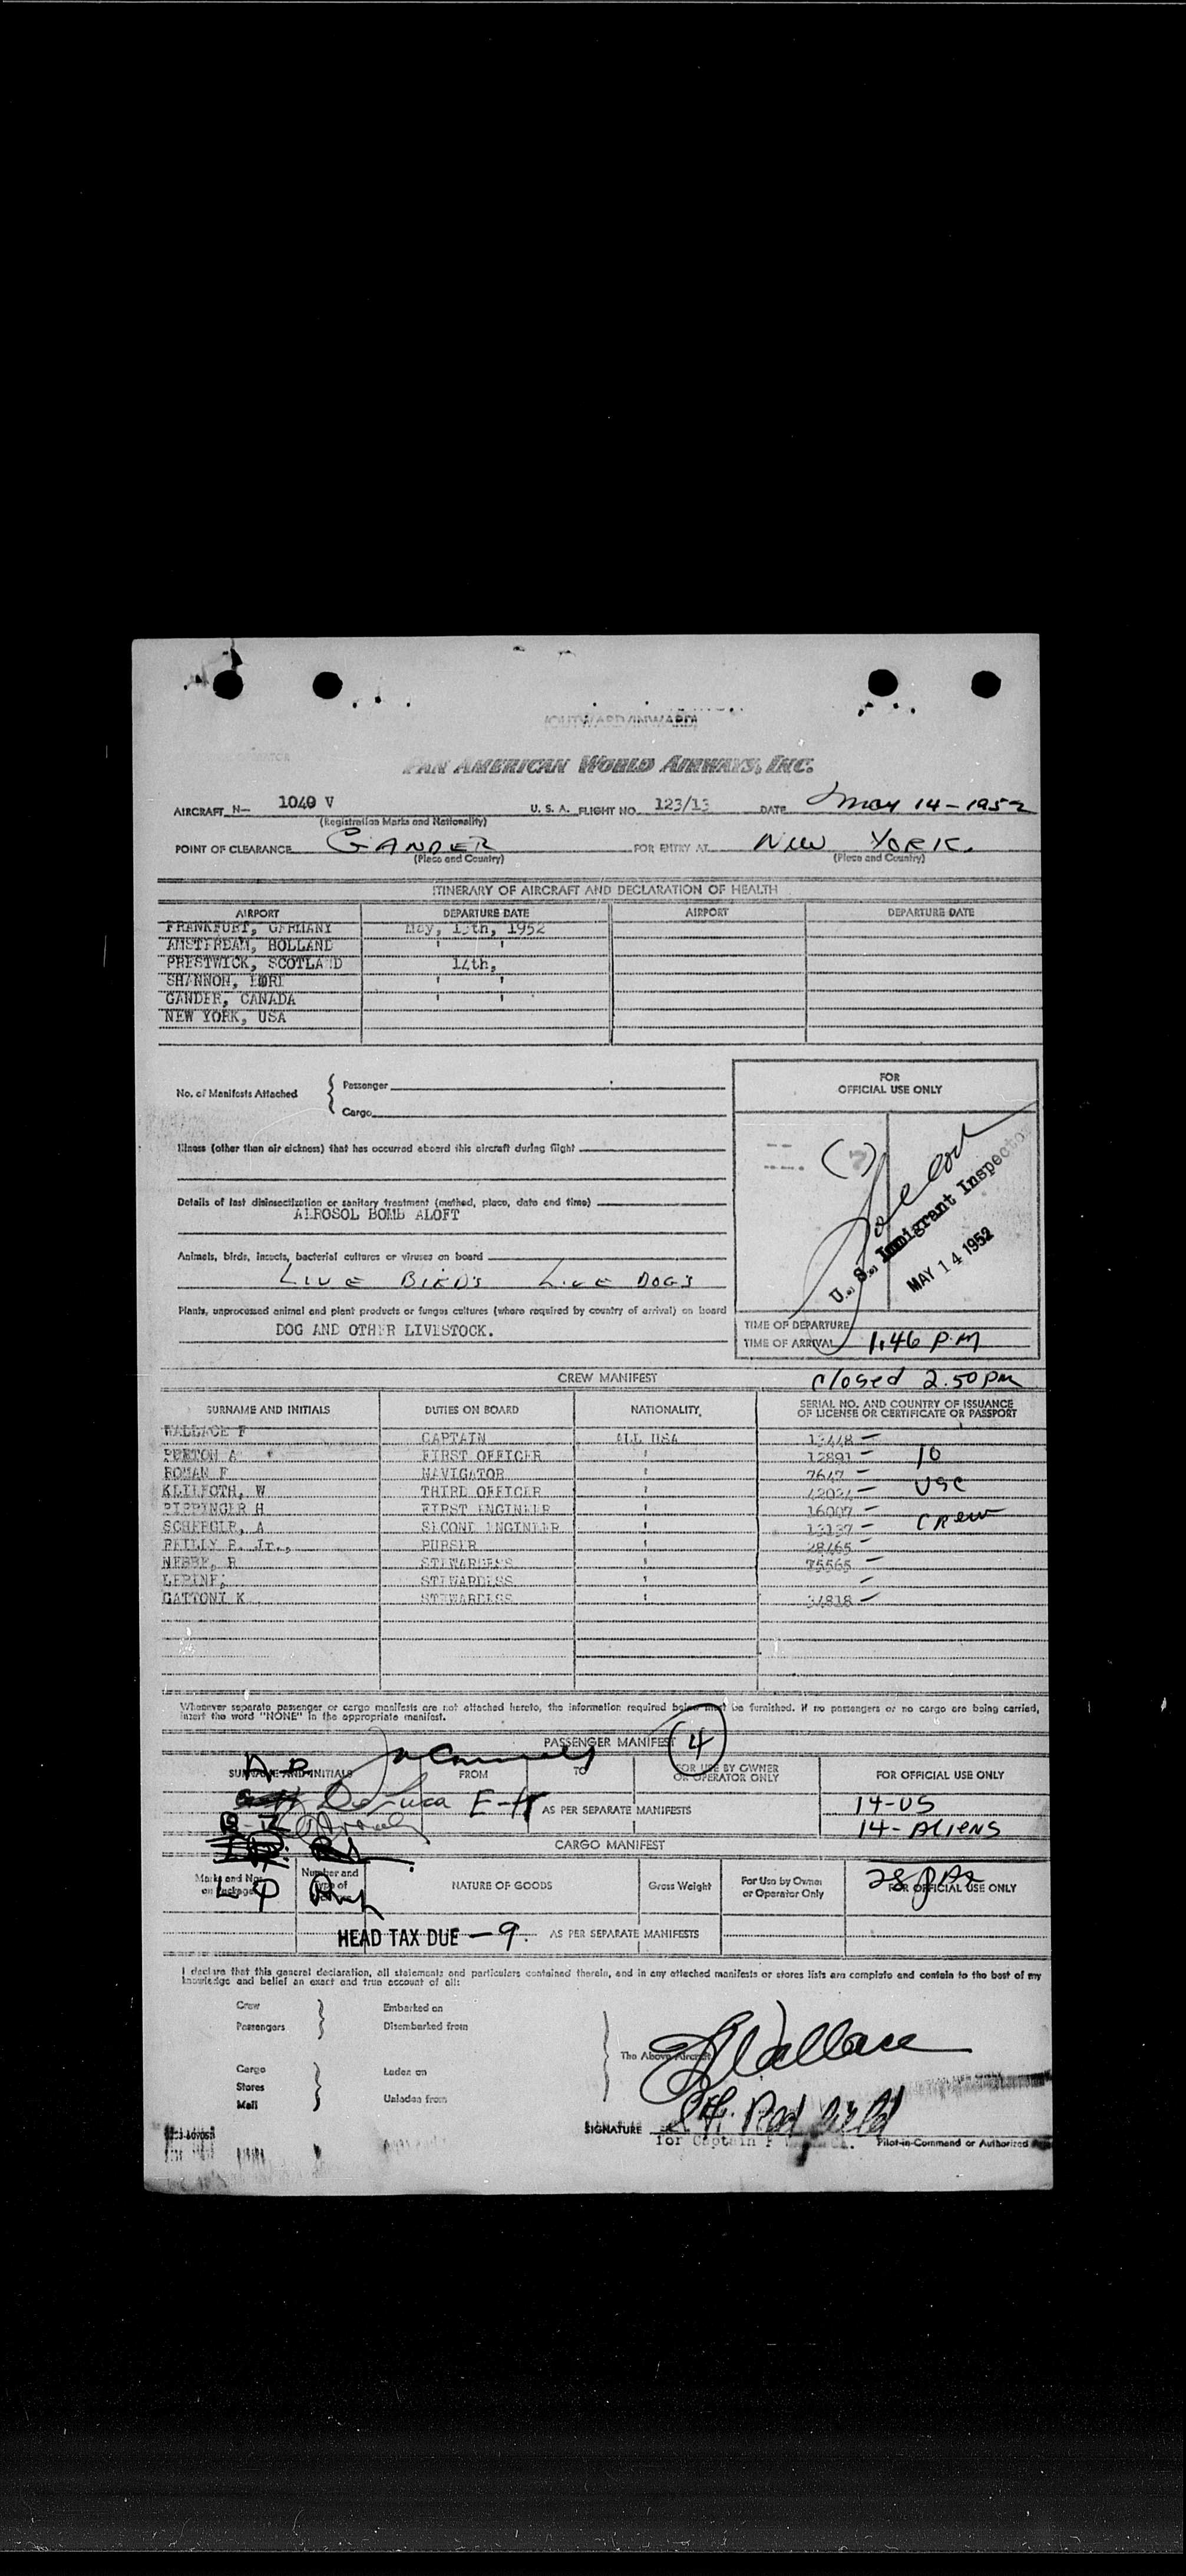 (OUTWARD/INWARD)
PAN AMERICAN WORLD AIRWAYS, INC.
AIRCRAFT N- 1040 V U. S. A. FLIGHT NO. 123/13 DATE May 14-1952
(Registration Marks and Nationality)
POINT OF CLEARANCE GANDER FOR ENTRY AT NEW YORK.
(Place and Country) (Place and Country)
ITINERARY OF AIRCRAFT AND DECLARATION OF HEALTH
AIRPORT DEPARTURE DATE AIRPORT DEPARTURE DATE
FRANKFURT, GERMANY May, 13th, 1952
AMSTERDAM, HOLLAND ' '
PRESTWICK, SCOTLAND 14th,
SHANNON, ' '
GANDER, CANADA ' '
NEW YORK, USA
No. of Manifests Attached { Passenger
Cargo
FOR
OFFICIAL USE ONLY
Illness (other than air sickness) that has occurred aboard this aircraft during flight
Details of last disinsectization or sanitary treatment (method, place, date and time)
AEROSOL BOMB ALOFT
U. S. Immigrant Inspector
MAY 14 1952
Animals, birds, insects, bacterial cultures or viruses on board
LIVE BIRDS LIVE DOGS
Plants, unprocessed animal and plant products or fungus cultures (where required by country of arrival) on board
DOG AND OTHER LIVESTOCK.
TIME OF DEPARTURE
TIME OF ARRIVAL 1.46 P.M
CREW MANIFEST closed 2.50 PM
SURNAME AND INITIALS DUTIES ON BOARD NATIONALITY SERIAL NO. AND COUNTRY OF ISSUANCE
OF LICENSE OR CERTIFICATE OR PASSPORT
WALLACE F CAPTAIN ALL USA 13448 -
A FIRST OFFICER ' 12891 - 10
ROMAN F NAVIGATOR ' 7647 -
KLILFOTH, W THIRD OFFICER ' 42024 - USC
PIPPINGER H FIRST ENGINEER ' 16007 -
A SECOND ENGINEER ' 13137 - Crew
REILLY P. Jr., PURSER ' 28465 -
R STEWARDESS ' 75565 -
LEPINE, STEWARDESS ' -
GATTONI K STEWARDESS ' 34818 -
Whenever separate passenger or cargo manifests are not attached hereto, the information required below must be furnished. If no passengers or no cargo are being carried,
insert the word "NONE" in the appropriate manifest.
PASSENGER MANIFEST 4
SURNAME AND INITIALS FROM TO FOR USE BY OWNER
OR OPERATOR ONLY FOR OFFICIAL USE ONLY
De Luca AS PER SEPARATE MANIFESTS 14-US
14-ALIENS
CARGO MANIFEST
Marks and Nos.
on Packages Number and
Type of NATURE OF GOODS Gross Weight For Use by Owner
or Operator Only FOR OFFICIAL USE ONLY
HEAD TAX DUE - 9. AS PER SEPARATE MANIFESTS
I declare that this general declaration, all statements and particulars contained therein, and in any attached manifests or stores lists are complete and contain to the best of my
knowledge and belief an exact and true account of all:
Crew Embarked on
Passengers Disembarked from
The Above Aircraft
Wallace
Cargo Laden on
Stores
Mail Unladen from
SIGNATURE
for Captain F Pilot-in-Command or Authorized